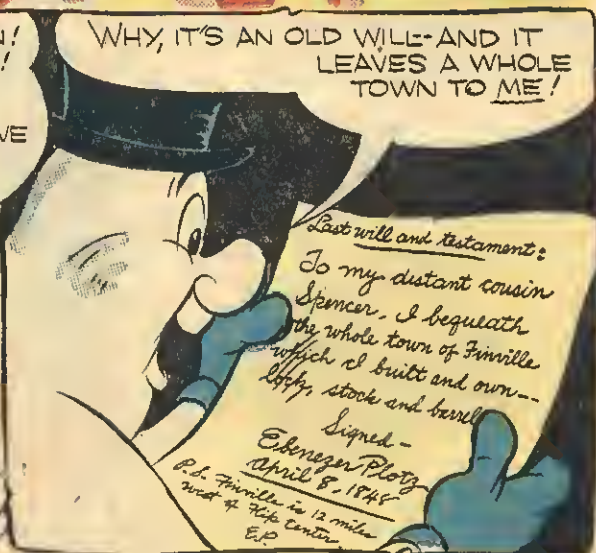 N!
!
VE
WHY, IT'S AN OLD WILL--AND IT
LEAVES A WHOLE
TOWN TO ME!
Last will and testament:
To my distant cousin
Spencer, I bequeath
the whole town of Finville
which I built and own--
lock, stock and barrel
Signed-
Ebenezer Plotz
April 8, 1848
P.S. Finville is 12 miles
west of Flip Center
E.P.